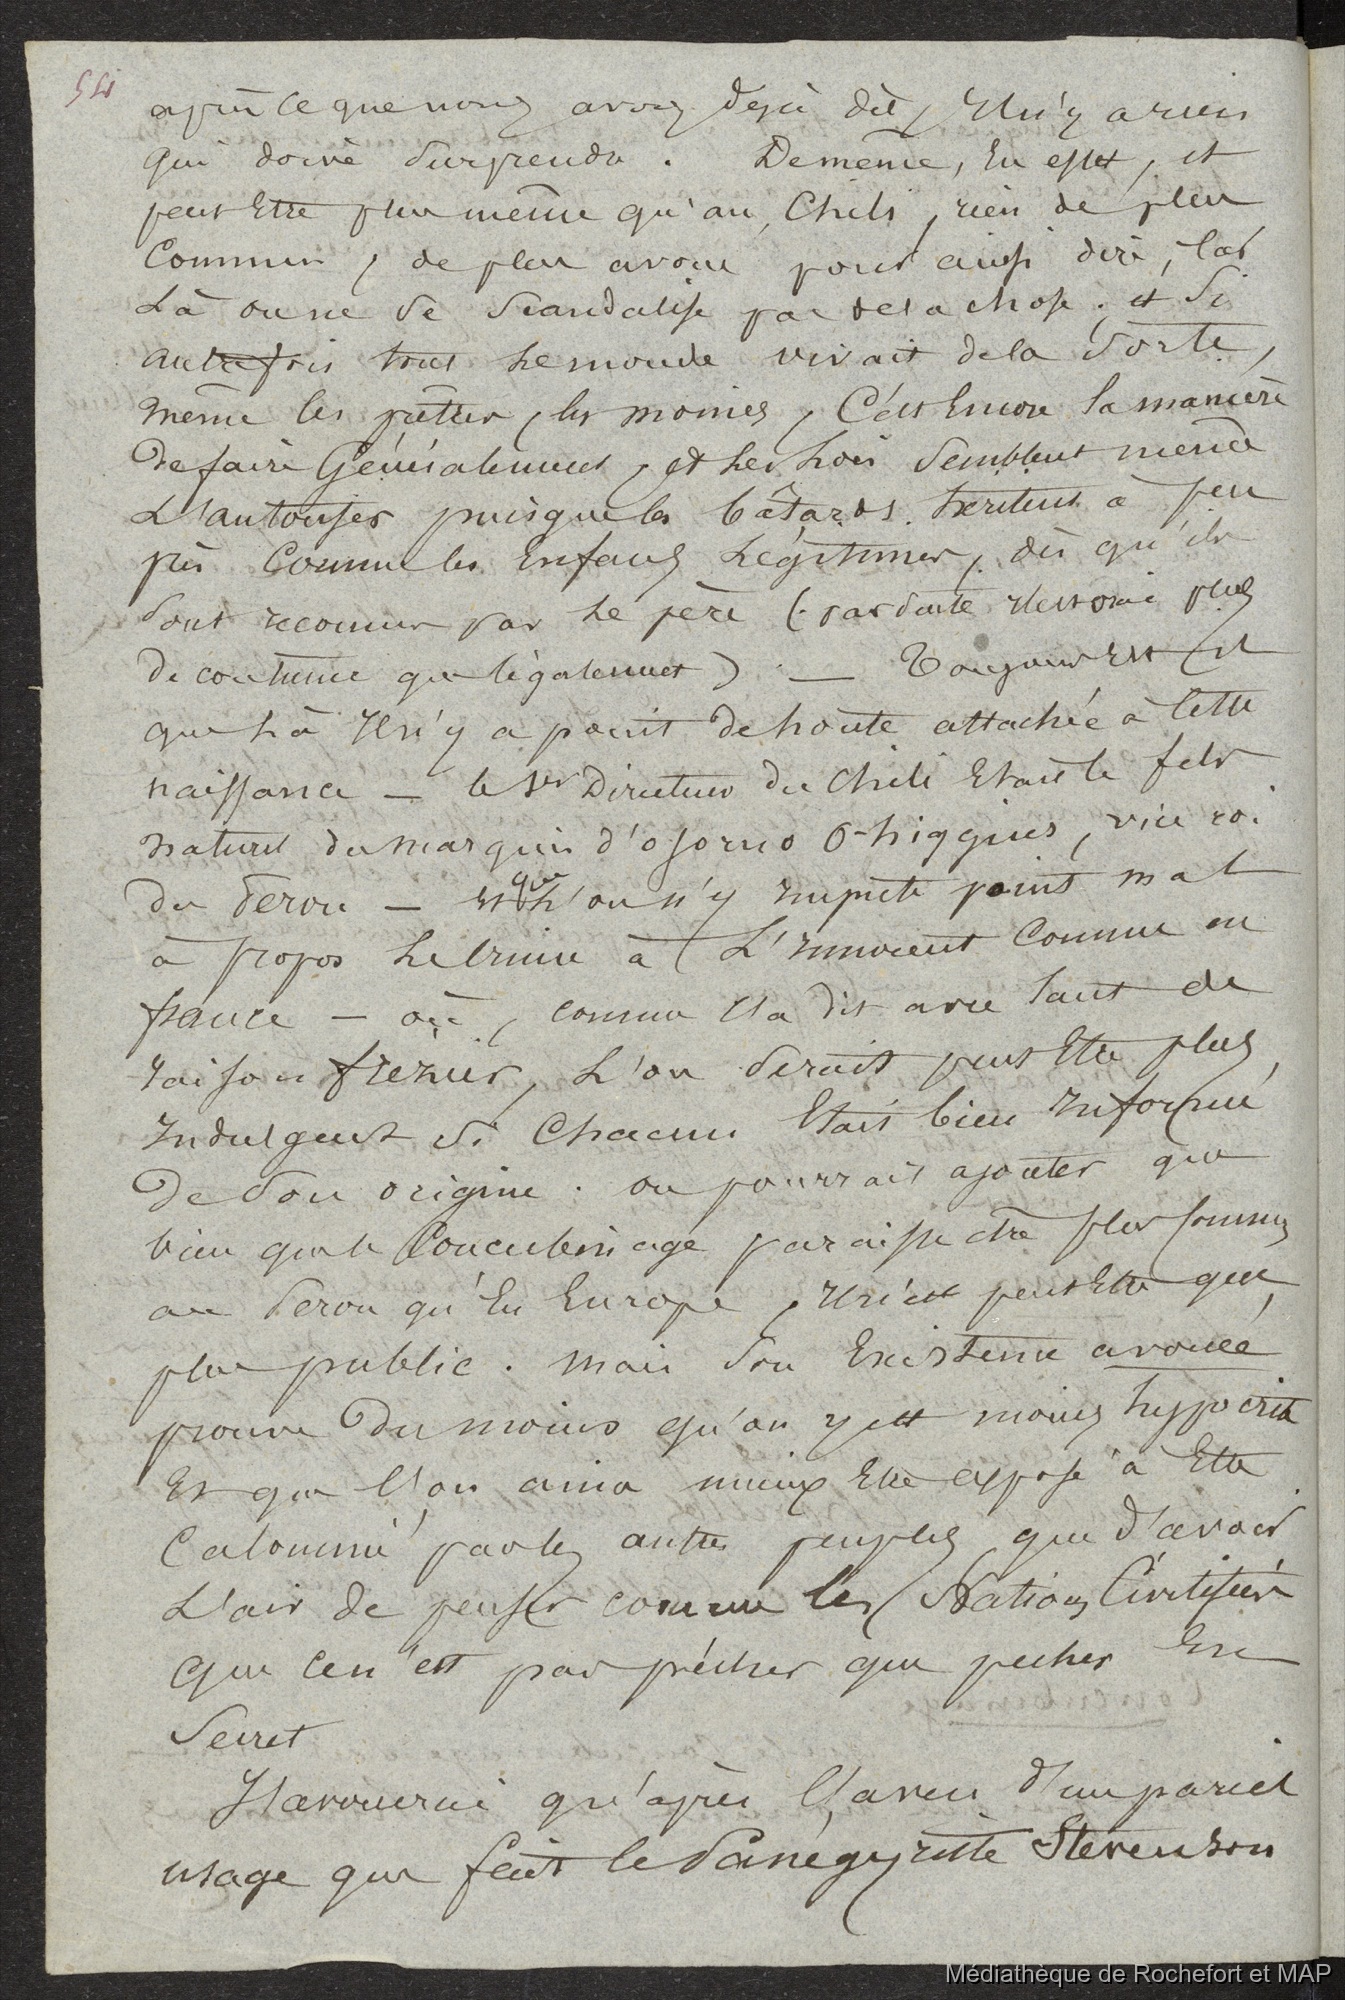 54
après ce que nous avons déjà dit, Il n'y a rien
qui doive surprendre. De même, En effet, et
peut Etre plus même qu'au Chili, rien de plus
Commun, de plus avoué pour ainsi dire, Car
Là on ne se scandalise pas de la chose; et si
autrefois tout le monde vivait de la sorte,
même les prêtres, les moines, C'est Encore la manière
de faire Généralement, et les Lois semblent même
L'autoriser puisque les bâtards héritent à peu
près Comme les Enfans Légitimes, dès qu'ils
sont reconnus par le père (par suite il est vrai plus
de coutume que légalement) — Toujours Est il
que là Il n'y a point de honte attachée à Cette
naissance — le 1er Directeur du Chili Etait le fils
naturel du marquis d'osorno O-higgins, vice roi
du Pérou — et que l'on n'y impute point mal
à propos le Crime à L'Innocent Comme en
france — où, comme l'a dit avec tant de
raison frézier, L'on serait peut Etre plus
Indulgent si Chacun Etait bien Informé
de son origine. on pourrait ajouter que
bien que le Concubinage paraisse être plus Commun
au Pérou qu'En Europe, Il n'est peut Etre que
plus public. mais son Existence avouée
prouve du moins qu'on y est moins hypocrite
Et que l'on aime mieux Etre exposé à Etre
Calomnié par les autres peuples que d'avoir
L'air de penser comme les Nations Civilisées
que ce n'est pas pécher que pecher En
Secret
J'avouerai qu'après l'aveu d'un pareil
usage que fait le Panégyriste Stevenson
Médiathèque de Rochefort et MAP